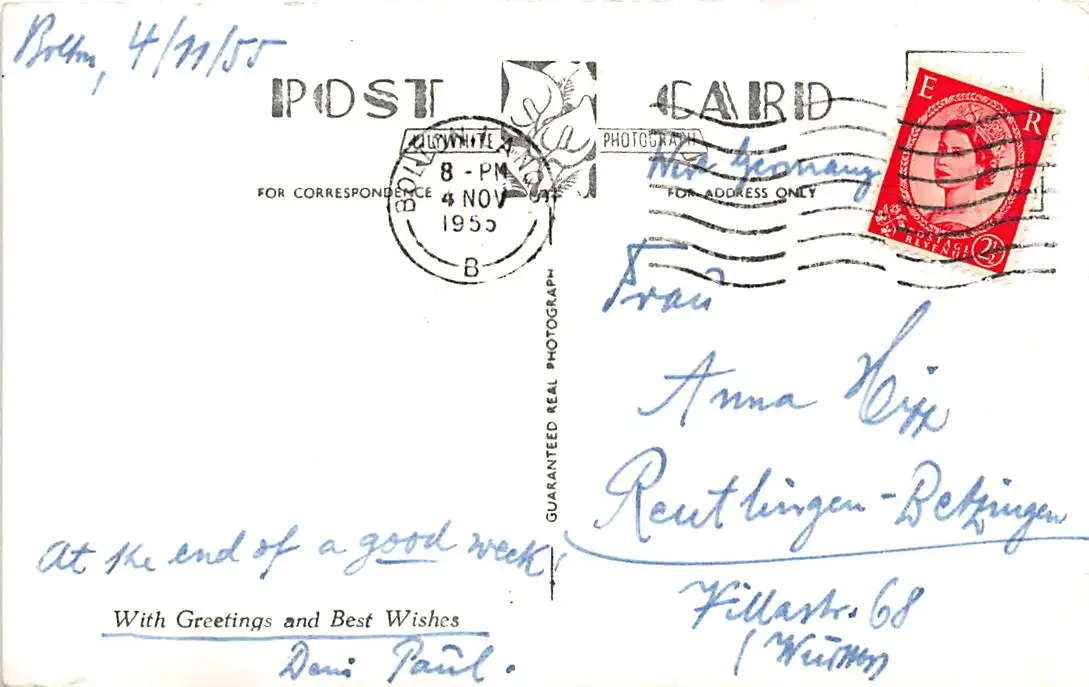 Bolton, 4/11/55
POST CARD
LILYWHITE PHOTOGRAPH
FOR CORRESPONDENCE
FOR ADDRESS ONLY
BOLTON LANCS
8 - PM
4 NOV
1955
B
E R
POSTAGE
REVENUE
2½
West Germany
Frau
Anna Hipp
Reutlingen-Betzingen
Villastr. 68
(Württ)
GUARANTEED REAL PHOTOGRAPH
At the end of a good week!
With Greetings and Best Wishes
Dein Paul.